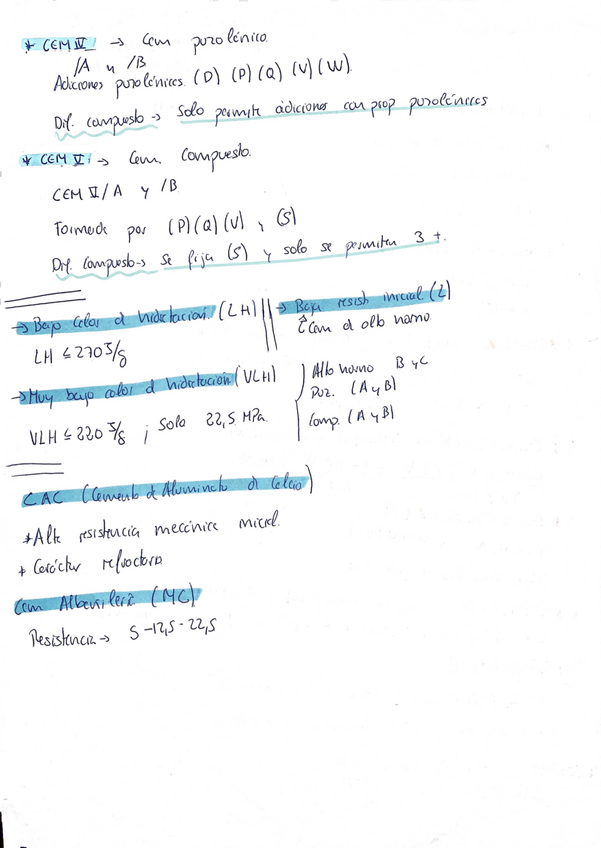 * CEM IV → Cem puzolánico.
/A y /B
Adiciones puzolánicas. (D) (P) (Q) (V) (W).
Dif. compuesto → Solo permite adiciones con prop puzolánicas
* CEM V: → Cem. Compuesto.
CEM V/A y /B
Formado por (P)(Q)(V) y (S)
Dif. Compuesto → se fija (S) y solo se permiten 3 +.
→ Bajo Calor d hidratación (LH)
LH ≤ 270 J/g
→ Muy bajo calor d hidratación (VLH)
VLH ≤ 220 J/g ; Solo 22,5 MPa.
→ Baja resist inicial (L)
Cem d alto horno
Alto horno B y C
Puz. (A y B)
Comp. (A y B)
CAC (Cemento d Aluminato d Calcio)
* Alta resistencia mecánica inicial.
* Carácter refractario
Cem Albañilería (MC)
Resistencia → 5 - 12,5 - 22,5